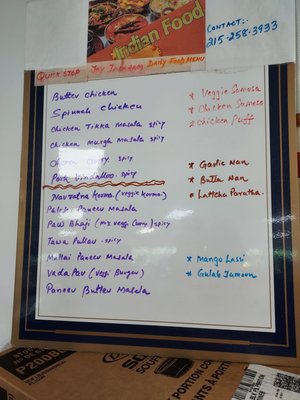 Indian Food
CONTACT:-
215-258-3933
QUICK STOP Jay Daily Food MENU
Butter chicken
Spinach chicken
Chicken Tikka masala spicy
Chicken murgh masala spicy
Chicken curry spicy
Pork Vindalloo spicy
Navratna Korma (veggie korma)
Palak Paneer Masala
Paw Bhaji (mix veggi curry) spicy
Tawa Pullav . spicy
Muttai Paneer Masala
Vada Pav (veggi Burger)
Paneer Butter Masala
* Veggie Samosa
* Chicken Samosas
* Chicken Puff
* Garlic Nan
* Butter Nan
* Lattcha Paratha
* Mango Lassi
* Gulab Jamoon
STOP
P200B